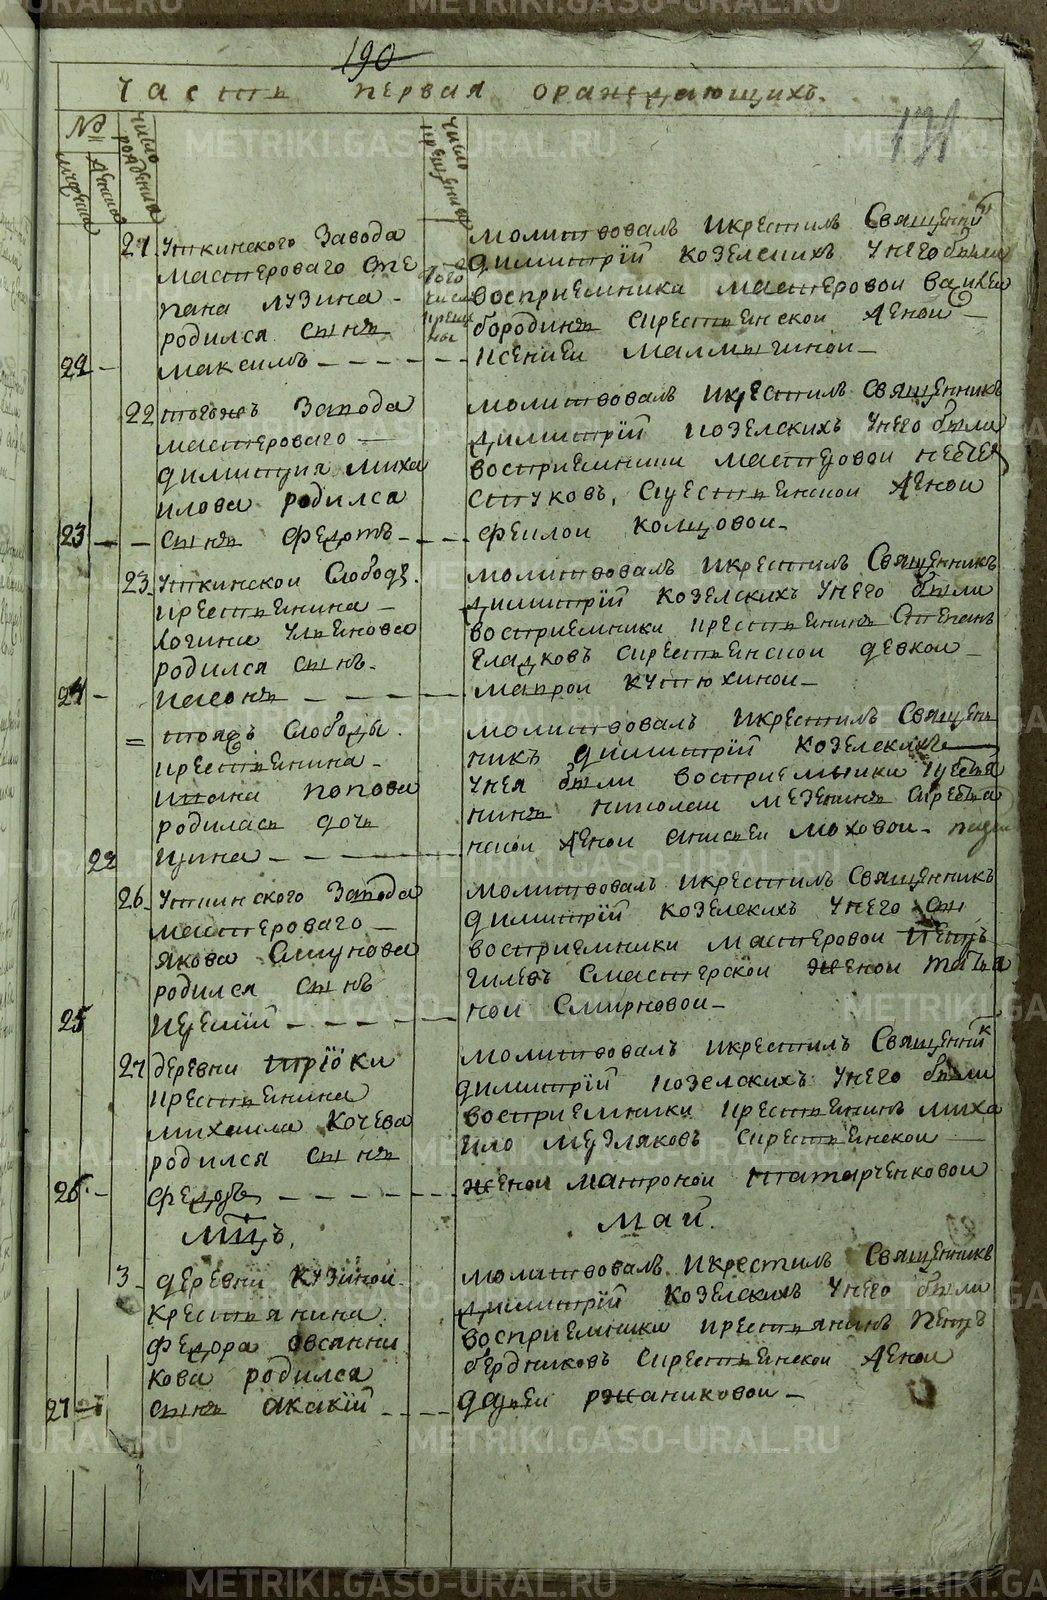 METRIKI.GASO-URAL.RU
190
Часть первая ораждающихъ.
131
№
число рождения
число крещения
мужеска
женска
21 Уткинского Завода
мастероваго Сте
пана Лузина -
родился сынъ
22 - Максимъ
того числа крещ
молитвовалъ икрестилъ Священник
димитрїй козелскихъ унего были
восприемники мастеровои
бородинъ скрестьянскои женои
ксениеи малмыгинои
22 тогожъ Завода
мастероваго
димитрия миха
илова родился
23 - сынъ федотъ
молитвовалъ икрестилъ Священникъ
димитрїй козелскихъ унего были
восприемники мастеровои
стуковъ, скрестьянскои женои
феклои колцовои
23 Уткинскои Слободы
крестьянина
логина
родился сынъ
24 - иасонъ
молитвовалъ икрестилъ Священникъ
димитрїй козелскихъ унего были
восприемники крестьянинъ Степанъ
гладковъ скрестьянскои девкои
маврои кутюхинои
= тояжъ Слободы
крестьянина
ивана попова
родилась дочь
22 ирина
молитвовалъ икрестилъ Священ
никъ димитрїй козелскихъ
унея были восприемники крестья
нинъ николаи мезенинъ скрестья
нскои женои анисьеи моховои
26 Уткинского Завода
мастероваго
якова Смирнова
родился сынъ
25 иеремїй
молитвовалъ икрестилъ Священникъ
димитрїй козелскихъ унего бы
восприемники мастеровои петръ
гилевъ смастерскои женои татья
нои Смирновои
27 деревни трїоки
крестьянина
михаила Кочева
родился сынъ
26 - федоръ
молитвовалъ икрестилъ Священник
димитрїй козелскихъ унего были
восприемники крестьянинъ миха
ило мезляковъ скрестьянскои
женои матронои татарченковои
мцъ,
маи.
3 деревни кузинои
крестьянина
федора овсянни
кова родился
27 сынъ акакїй
молитвовалъ икрестилъ Священникъ
димитрїй козелскихъ унего были
восприемники крестьянинъ петръ
бердниковъ скрестьянскои женои
дарьеи ржаниковои
METRIKI.GASO-URAL.RU